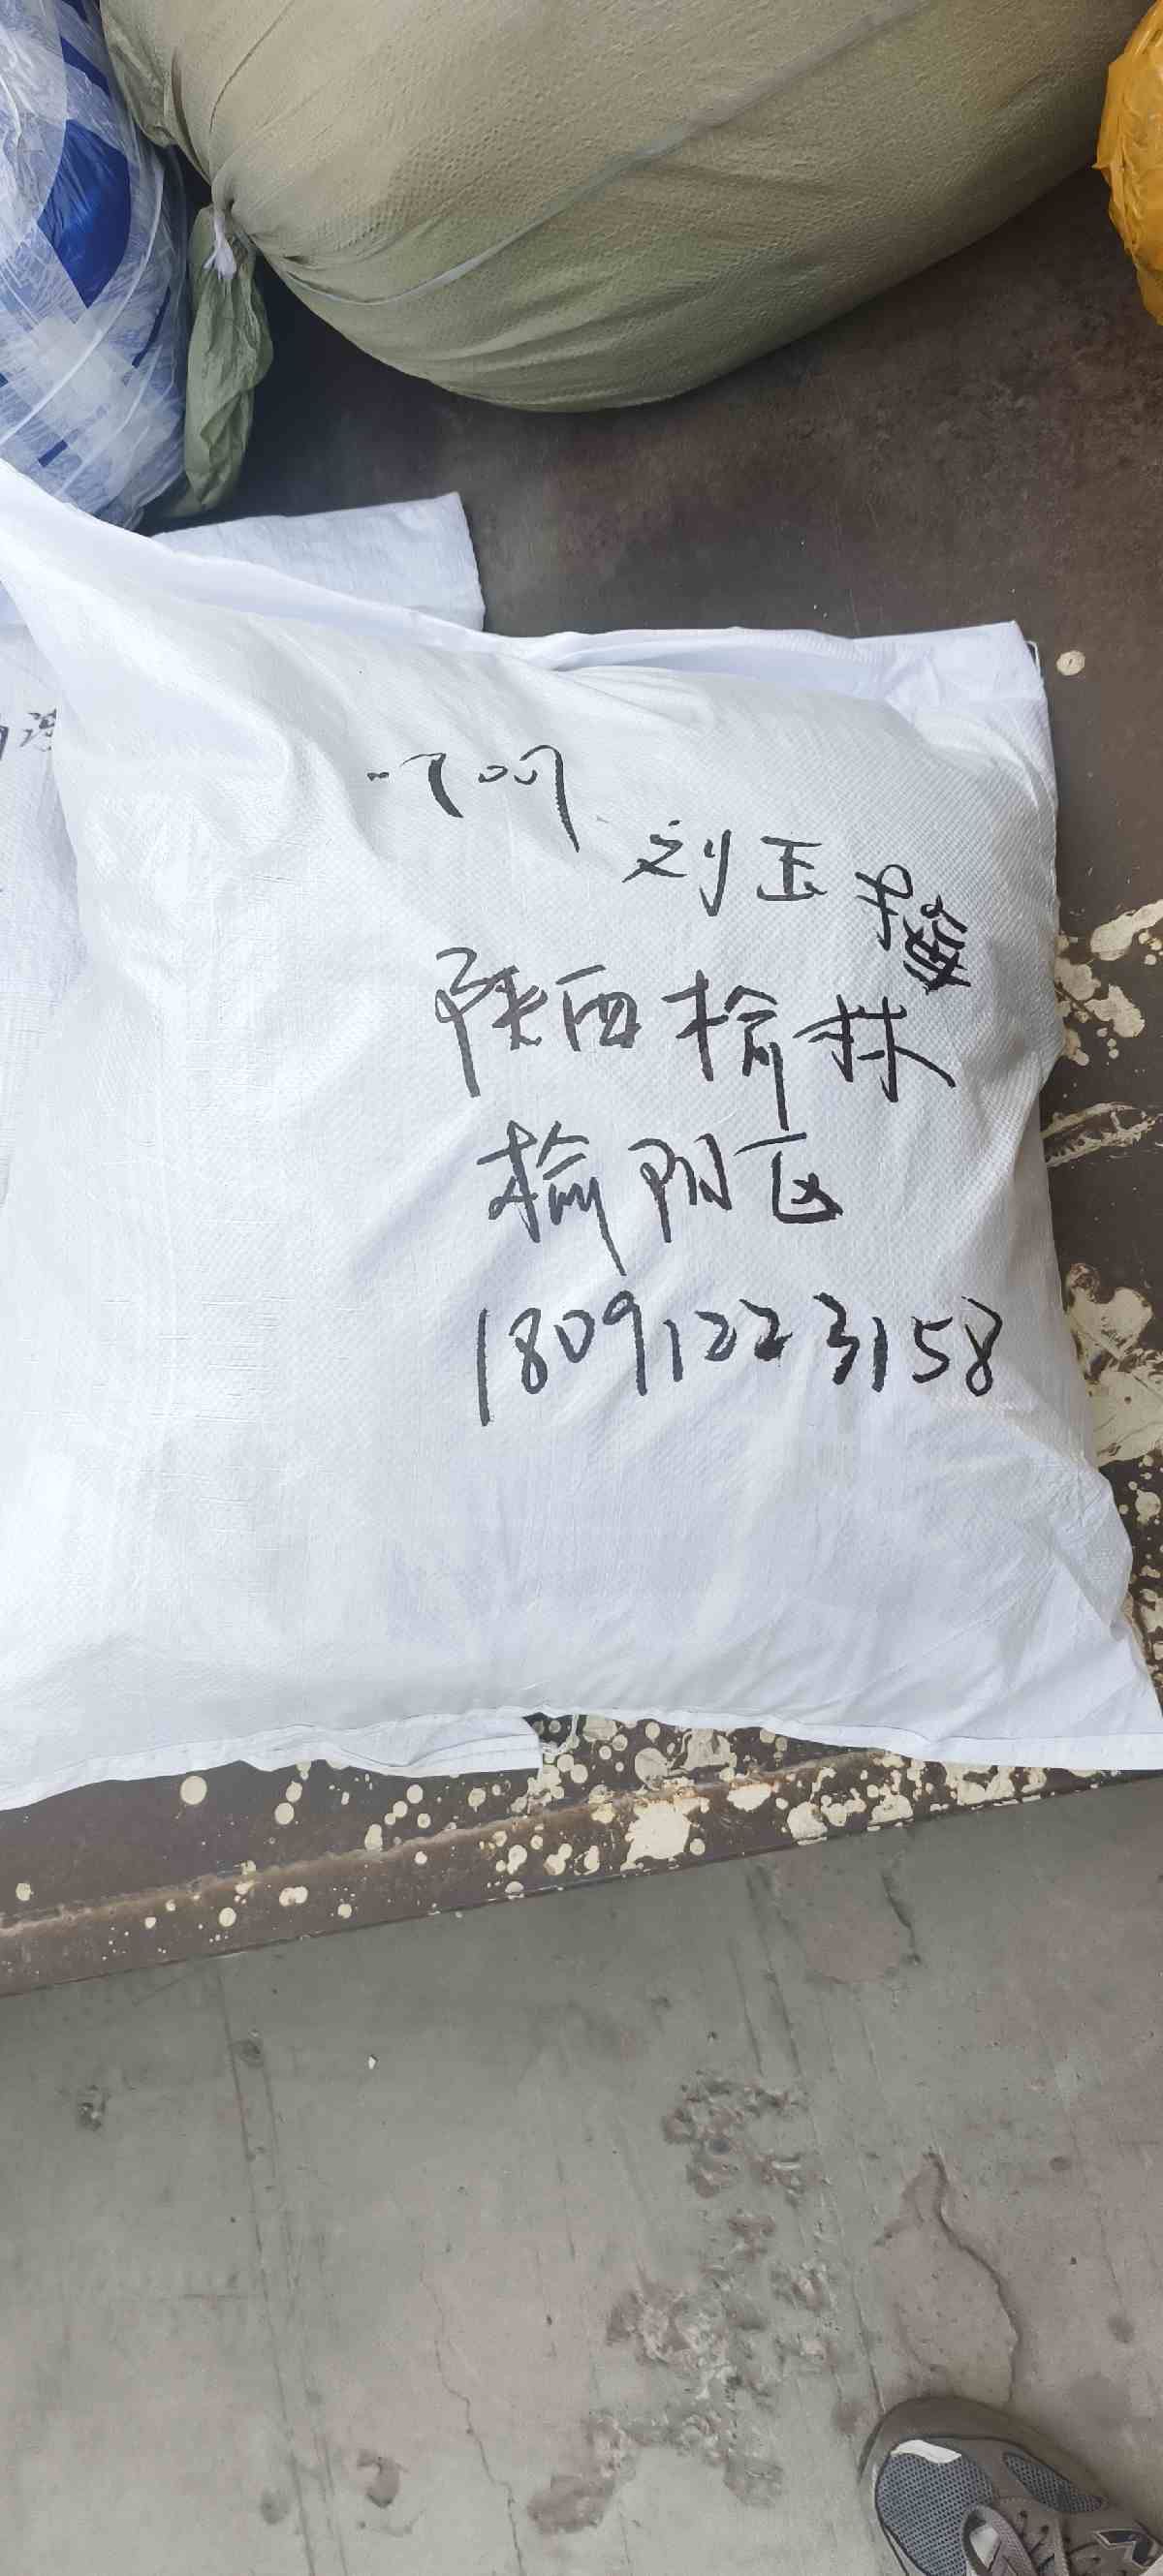 刘玉
陕西榆林
榆阳区
18091223158